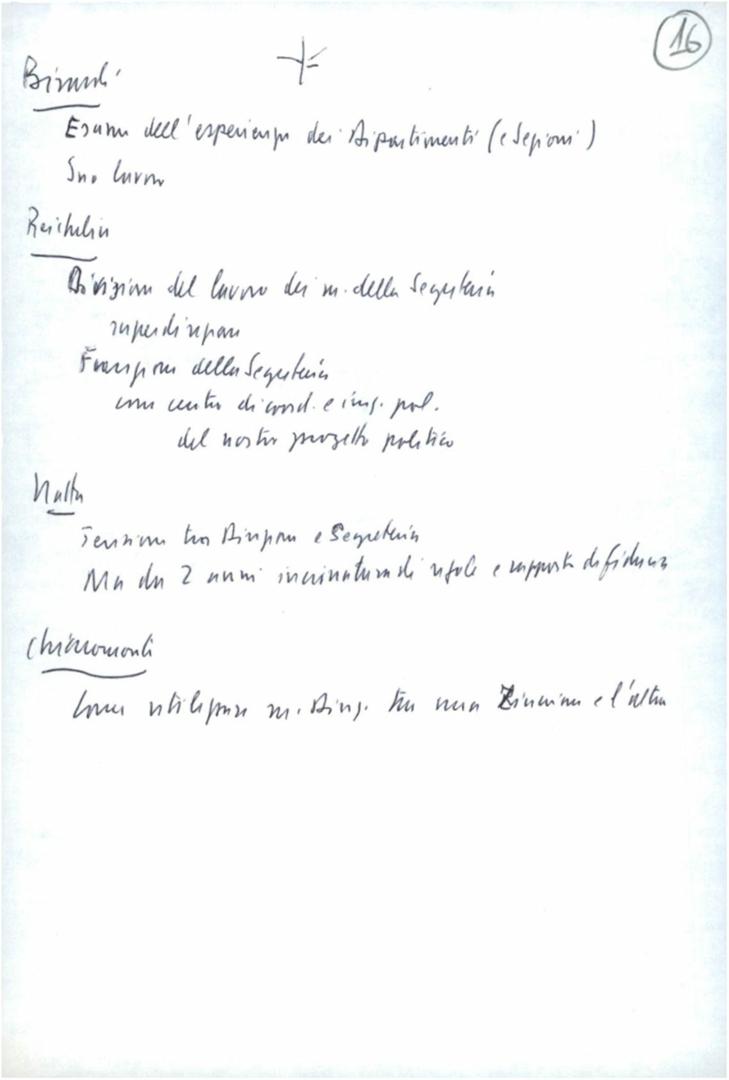 16
Birardi
Esame dell'esperienza dei Dipartimenti (e Sezioni)
Suo lavoro
Reichlin
Divisione del lavoro dei m. della Segreteria
Funzione della Segreteria
come centro di coord. e
del nostro progetto politico
Natta
Tensione tra Direzione e Segreteria
Ma da 2 anni incrinatura di regole e rapporti di fiducia
Chiaromonte
Come utilizzare m. Direz. tra una riunione e l'altra